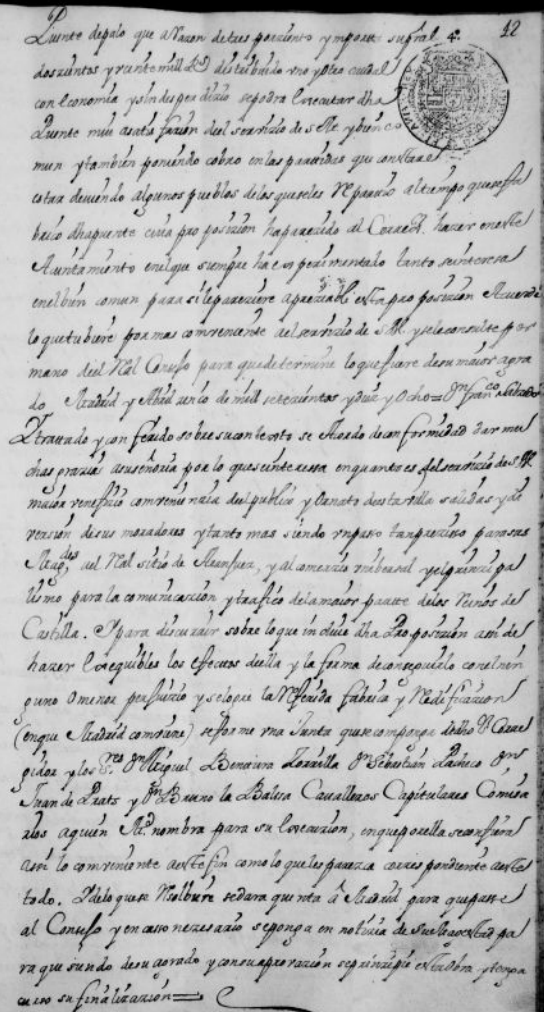 42
Puente de palo que a Razon de tres por ciento ymporta su pral 4º
dosientos y veinte mill ds distribuido uno y otro cuidal
con Economia y sin desperdizio se podra Executar dha
Puente mui a satisfazion del servizio de S M. y bien co
mun y tambien poniendo cobro en las partidas que constare
estar deviendo algunos pueblos de los que se les Repartio al tiempo que se fa
brico dha puente cuia proposizion ha parezido al Correxr. hazer en este
Aiuntamiento en el que siempre ha experimentado tanto se interesa
en el bien comun para si le pareziere apreziable esta proposizion Acuerde
lo que tubiere por mas combeniente al servizio de S M. y se le consulte por
mano del Rl Consejo para que determine lo que fuere de su maior agra
do Madrid y Abril de mill setezientos y diez y Ocho= Dn Franco Salzedo
Y tratado y conferido sobre su contexto se Acordo de conformidad dar mu
chas grazias a su señoria por lo que se interessa en quanto es del servizio de S M.
maior venefizio combenienzia del publico y Ornato de esta villa salidas y di
version de sus moradores y tanto mas siendo un passo tan prezisso para sus
Magdes al Rl sitio de Aranjuez, y al comerzio unibersal y el prinzipa
lismo para la comunicazion y trafico de la maior parte de los Reinos de
Castilla. Y para discurrir sobre lo que incluie dha Proposizion a fin de
hazer Exequibles los efectos de ella y la forma de conseguirlo con el nin
guno o menor perjuizio y se logre la Referida fabrica y Redificazion
(en que Madrid combiene) se forme una Junta que se componga de dho Sr Corre
gidor y los Sres Dn Miguel Dn Sebastian Pacheco Dn
Juan de Prats y Dn Bruno la Balsa Cavalleros Capitulares Comisa
rios a quien Md. nombra para su Execuzion, en que por ella se confiera
assi lo combeniente a este fin como lo que les parezca correspondiente a este
todo. Y de lo que se Resolbiere se dara quenta â Madrid para que passe
al Consejo y en casso nezessario se ponga en notizia de su Magestad pa
ra que siendo de su agrado y con su aprovazion se prinzipie esta obra y tenga
curso su finalizazion=